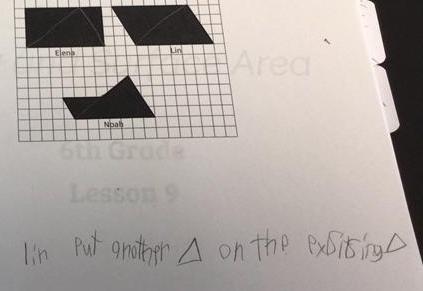 Area
Elena
Lin
Noah
6th Grade
Lesson 9
lin put another △ on the exsitsing △